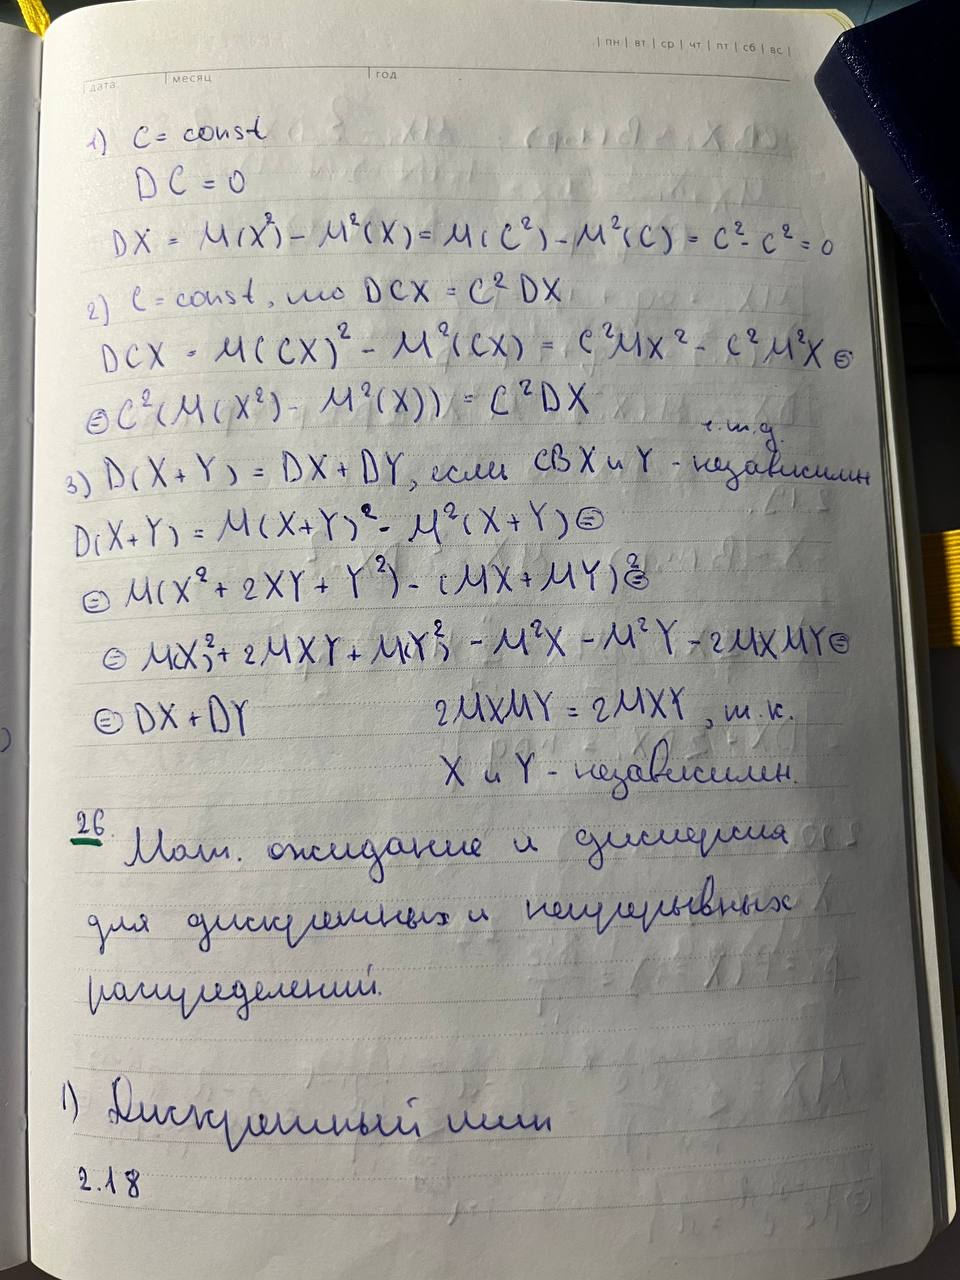 | пн | вт | ср | чт | пт | сб | вс |
дата | месяц | год
1) C = const
DC = 0
DX = M(X²) - M²(X) = M(C²) - M²(C) = C² - C² = 0
2) C = const, то DCX = C² DX
DCX = M(CX)² - M²(CX) = C²MX² - C²M²X ⊜
⊜ C²(M(X²) - M²(X)) = C²DX
ч.т.д.
3) D(X+Y) = DX + DY, если СВ X и Y - независимы
D(X+Y) = M(X+Y)² - M²(X+Y) ⊜
⊜ M(X² + 2XY + Y²) - (MX + MY)² ⊜
⊜ M(X)² + 2MXY + M(Y)² - M²X - M²Y - 2MXMY ⊜
⊜ DX + DY 2MXMY = 2MXY, т.к.
X и Y - независим.
26. Мат. ожидание и дисперсия
для дискретных и непрерывных
распределений.
1) Дискретный тип
2.18